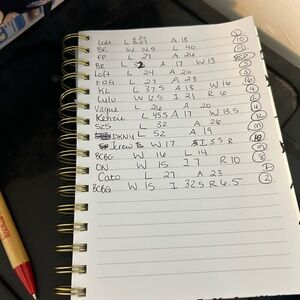 Loft L 24 A 18
BR W 14.5 L 40
FP L 27 A 26
BR L 2 A 17 W 13
Loft L 24 A 20
FOA L 27 A 23
KL L 37.5 A 18 W 16
Lulu W 12.5 I 21 R 6
Vague L 26 A 20
Kenzie L 45.5 A 17 W 13.5
525 L 32 A 26
DKNY L 52 A 19
crew W 17 I 5.5 R
BCBG W 16 L 14
ON W 15 I 7 R 10
Cato L 27 A 23
BCBG W 15 I 32.5 R 6.5